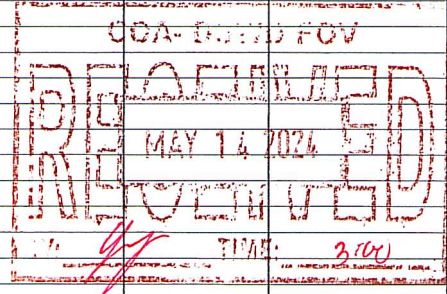 COA-
RECEIVED
MAY 14 2024
TIME: 3:00